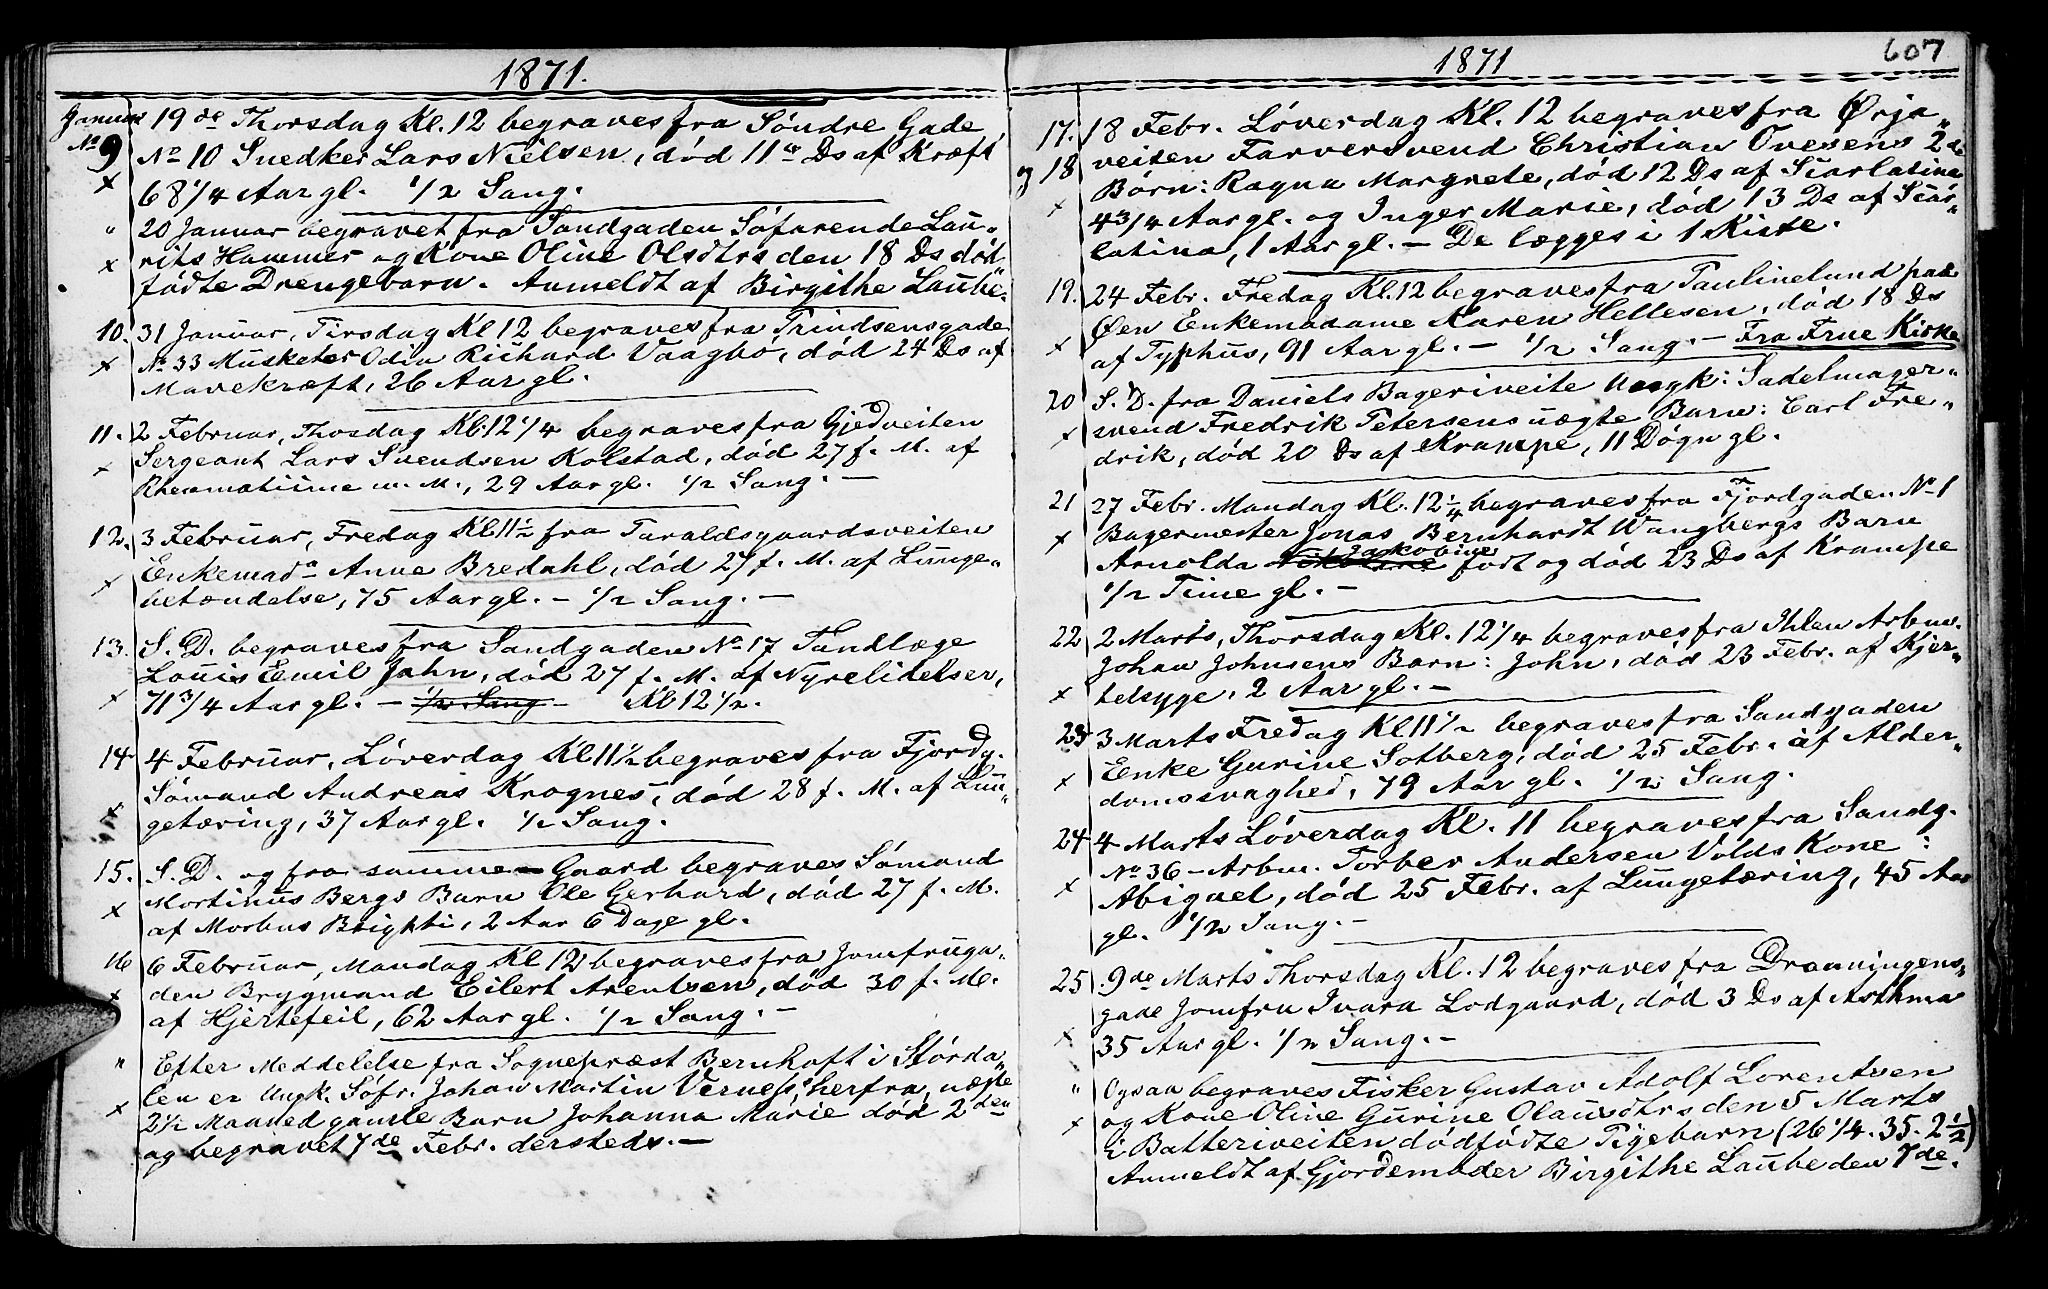 1871.
Januar 19de Thorsdag Kl. 12 begraves fra Söndre Gade,
No 9 No 10 Snedker Lars Nielsen, död 11te Ds af Kræft
x 68 1/4 Aar gl. 1/2 Sang.
" 20 Januar begravet fra Sandgaden Söfarende Lau-
x rits Hammer og Kone Oline Olsdtrs den 18 Ds död
födte Drengebarn. Anmeldt af Birgithe Laube.
10. 31 Januar, Tirsdag Kl 12 begraves fra Prindsensgade
x No 33 Musketer Odin Richard Vaagbö, död 24 Ds af
Mavekræft, 26 Aar gl.
11. 2 Februar, Thosdag Kl. 12 1/4 begraves fra Gjedveiten
x Sergeant Lars Svendsen Kolstad, död 27 f. M. af
Rheumatisme m. M., 29 Aar gl. 1/2 Sang. —
12. 3 Februar, Fredag Kl 11 1/2 fra Taraldsgaardsveiten
x Enkemada Anne Bredahl, död 27 f. M. af Lunge-
betændelse, 75 Aar gl. — 1/2 Sang. —
13. S. D. begraves fra Sandgaden No 17 Tandlæge
Louis Eemil Jahn, död 27 f. M. af Nyrelidelser,
x 71 3/4 Aar gl. — 1/2 Sang — Kl 12 1/2.
14 4 Februar, Löverdag Kl 11 1/2 begraves fra Fjordg.
Sömand Andreas Krognes, död 28 f. M. af Lun-
x getæring, 37 Aar gl. 1/2 Sang.
15. S. D. og fra samme Gaard begraves Sömand
x Mortinus Bergs Barn Ole Gerhard, död 27 f. M.
af Morbus Brigkti, 2 Aar 6 Dage gl.
16 6 Februar, Mandag Kl 12 begraves fra Jomfruga-
x den Brygmand Eilert Arentsen, död 30 f. M.
af Hjertefeil, 62 Aar gl. 1/2 Sang. —
" Efter Meddelelse fra Sognepræst Bernhoft i Stórda-
len er Ungk. Söfr. Johan Martin Verness, herfra, uægte
x 2 1/2 Maaned gamle Barn Johanna Marie död 2den
og begravet 7de Febr. dersteds. —
1871
607
17. 18 Febr. Löverdag Kl. 12 begraves fra Ørja-
g 18 veiten Farversvend Christian Ovesens 2de
Börn: Ragna Margrete, död 12 Ds af Scarlatina
x 4 3/4 Aar gl. og Inger Marie, död 13 Ds af Scar-
latina, 1 Aar gl. — De lægges i 1 Kiste.
19. 24 Febr. Fredag Kl. 12 begraves fra Paulinelund paa
Øen Enkemadame Karen Hellesen, död 18 Ds
x af Typhus, 91 Aar gl. — 1/2 Sang. — Fra Frue Kirke
20 S. D. fra Daniels Bageriveite Ungk: Sadelmager-
x svend Fredrik Petersens uægte Barn: Carl Fre-
drik, död 20 Ds af Krampe, 11 Dögn gl.
21 27 Febr. Mandag Kl. 12 1/4 begraves fra Fjordgaden No 1
x Bagermester Jonas Bernhardt Wangbergs Barn
Jaskobine
Arnolda födt og död 23 Ds af Krampe
1/2 Time gl. —
22 2 Marts, Thorsdag Kl. 12 1/4 begraves fra Ihlen Arbm.
Johan Johnsens Barn: John, död 23 Febr. af Kjer-
x telsyge, 2 Aar gl. —
23 3 Marts Fredag Kl 11 1/2 begraves fra Sandgaden
Enke Gurine Solberg, död 25 Febr. af Alder-
x domssvaghed, 79 Aar gl. 1/2 Sang.
24 4 Marts Löverdag Kl. 11 begraves fra Sandg.
No 36 — Arbm. Torber Andersen Volds Kone:
x Abigael, död 25 Febr. af Lungetæring, 45 Aar
gl. 1/2 Sang. —
25 9de Marts Thorsdag Kl. 12 begraves fra Dronningens-
gade Jomfru Ivara Lodgaard, död 3 Ds af Asthma
x 35 Aar gl. 1/2 Sang. —
" Ogsaa begraves Fisker Gustav Adolf Lorentsen
x og Kone Oline Gurine Olausdtrs den 5 Marts
i Batteriveiten dödfödte Pigebarn (26 1/4. 35. 2 1/2)
Anmeldt af Gjordemoder Birgithe Laube den 7de.